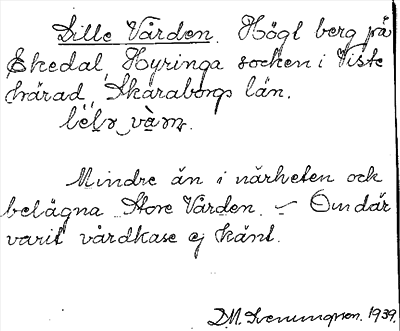 Lille Vården. Högl berg på
Ekedal, Hyringa socken i Viste
härad, Skaraborgs län.
Mindre än i närheten och
belägna Store Vården. – Om där
varit vårdkase ej känt.
1939.